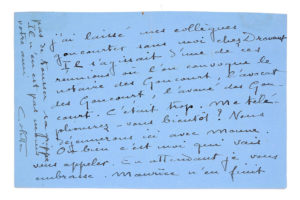 j'ai laissé mes collègues
Goncourtes sans moi chez Drouant
Il s'agissait d'une de ces
réunions où l'on convoque le
notaire des Goncourt, l'avocat
des Goncourt, l'avoué des Gon-
court. C'était trop. Me télé-
phonerez-vous bientôt? Nous
déjeunerons ici avec
Ou bien c'est moi qui vais
vous appeler. En attendant je vous
embrasse. Maurice n'en fait
pas
Il n'en est pas
votre
Colette